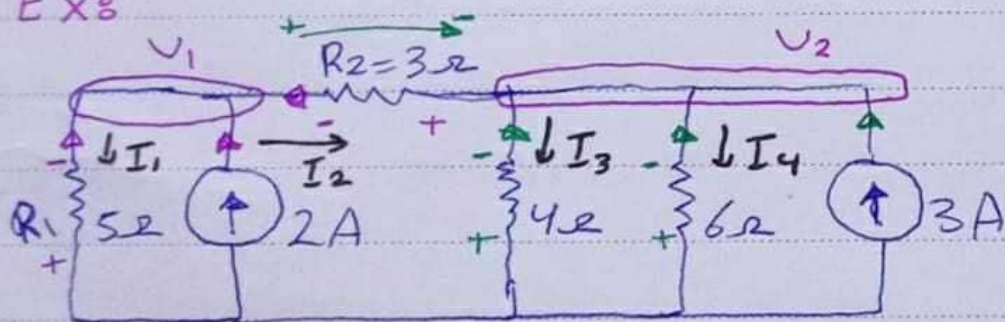 EX8
+ -
V1 R2=3Ω V2
- +
- ↓I1 I2 - ↓I3 - ↓I4
R1 5Ω 2A + 4Ω + 6Ω 3A
+